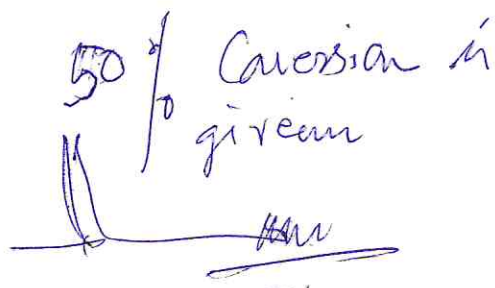 50% Concession is
given